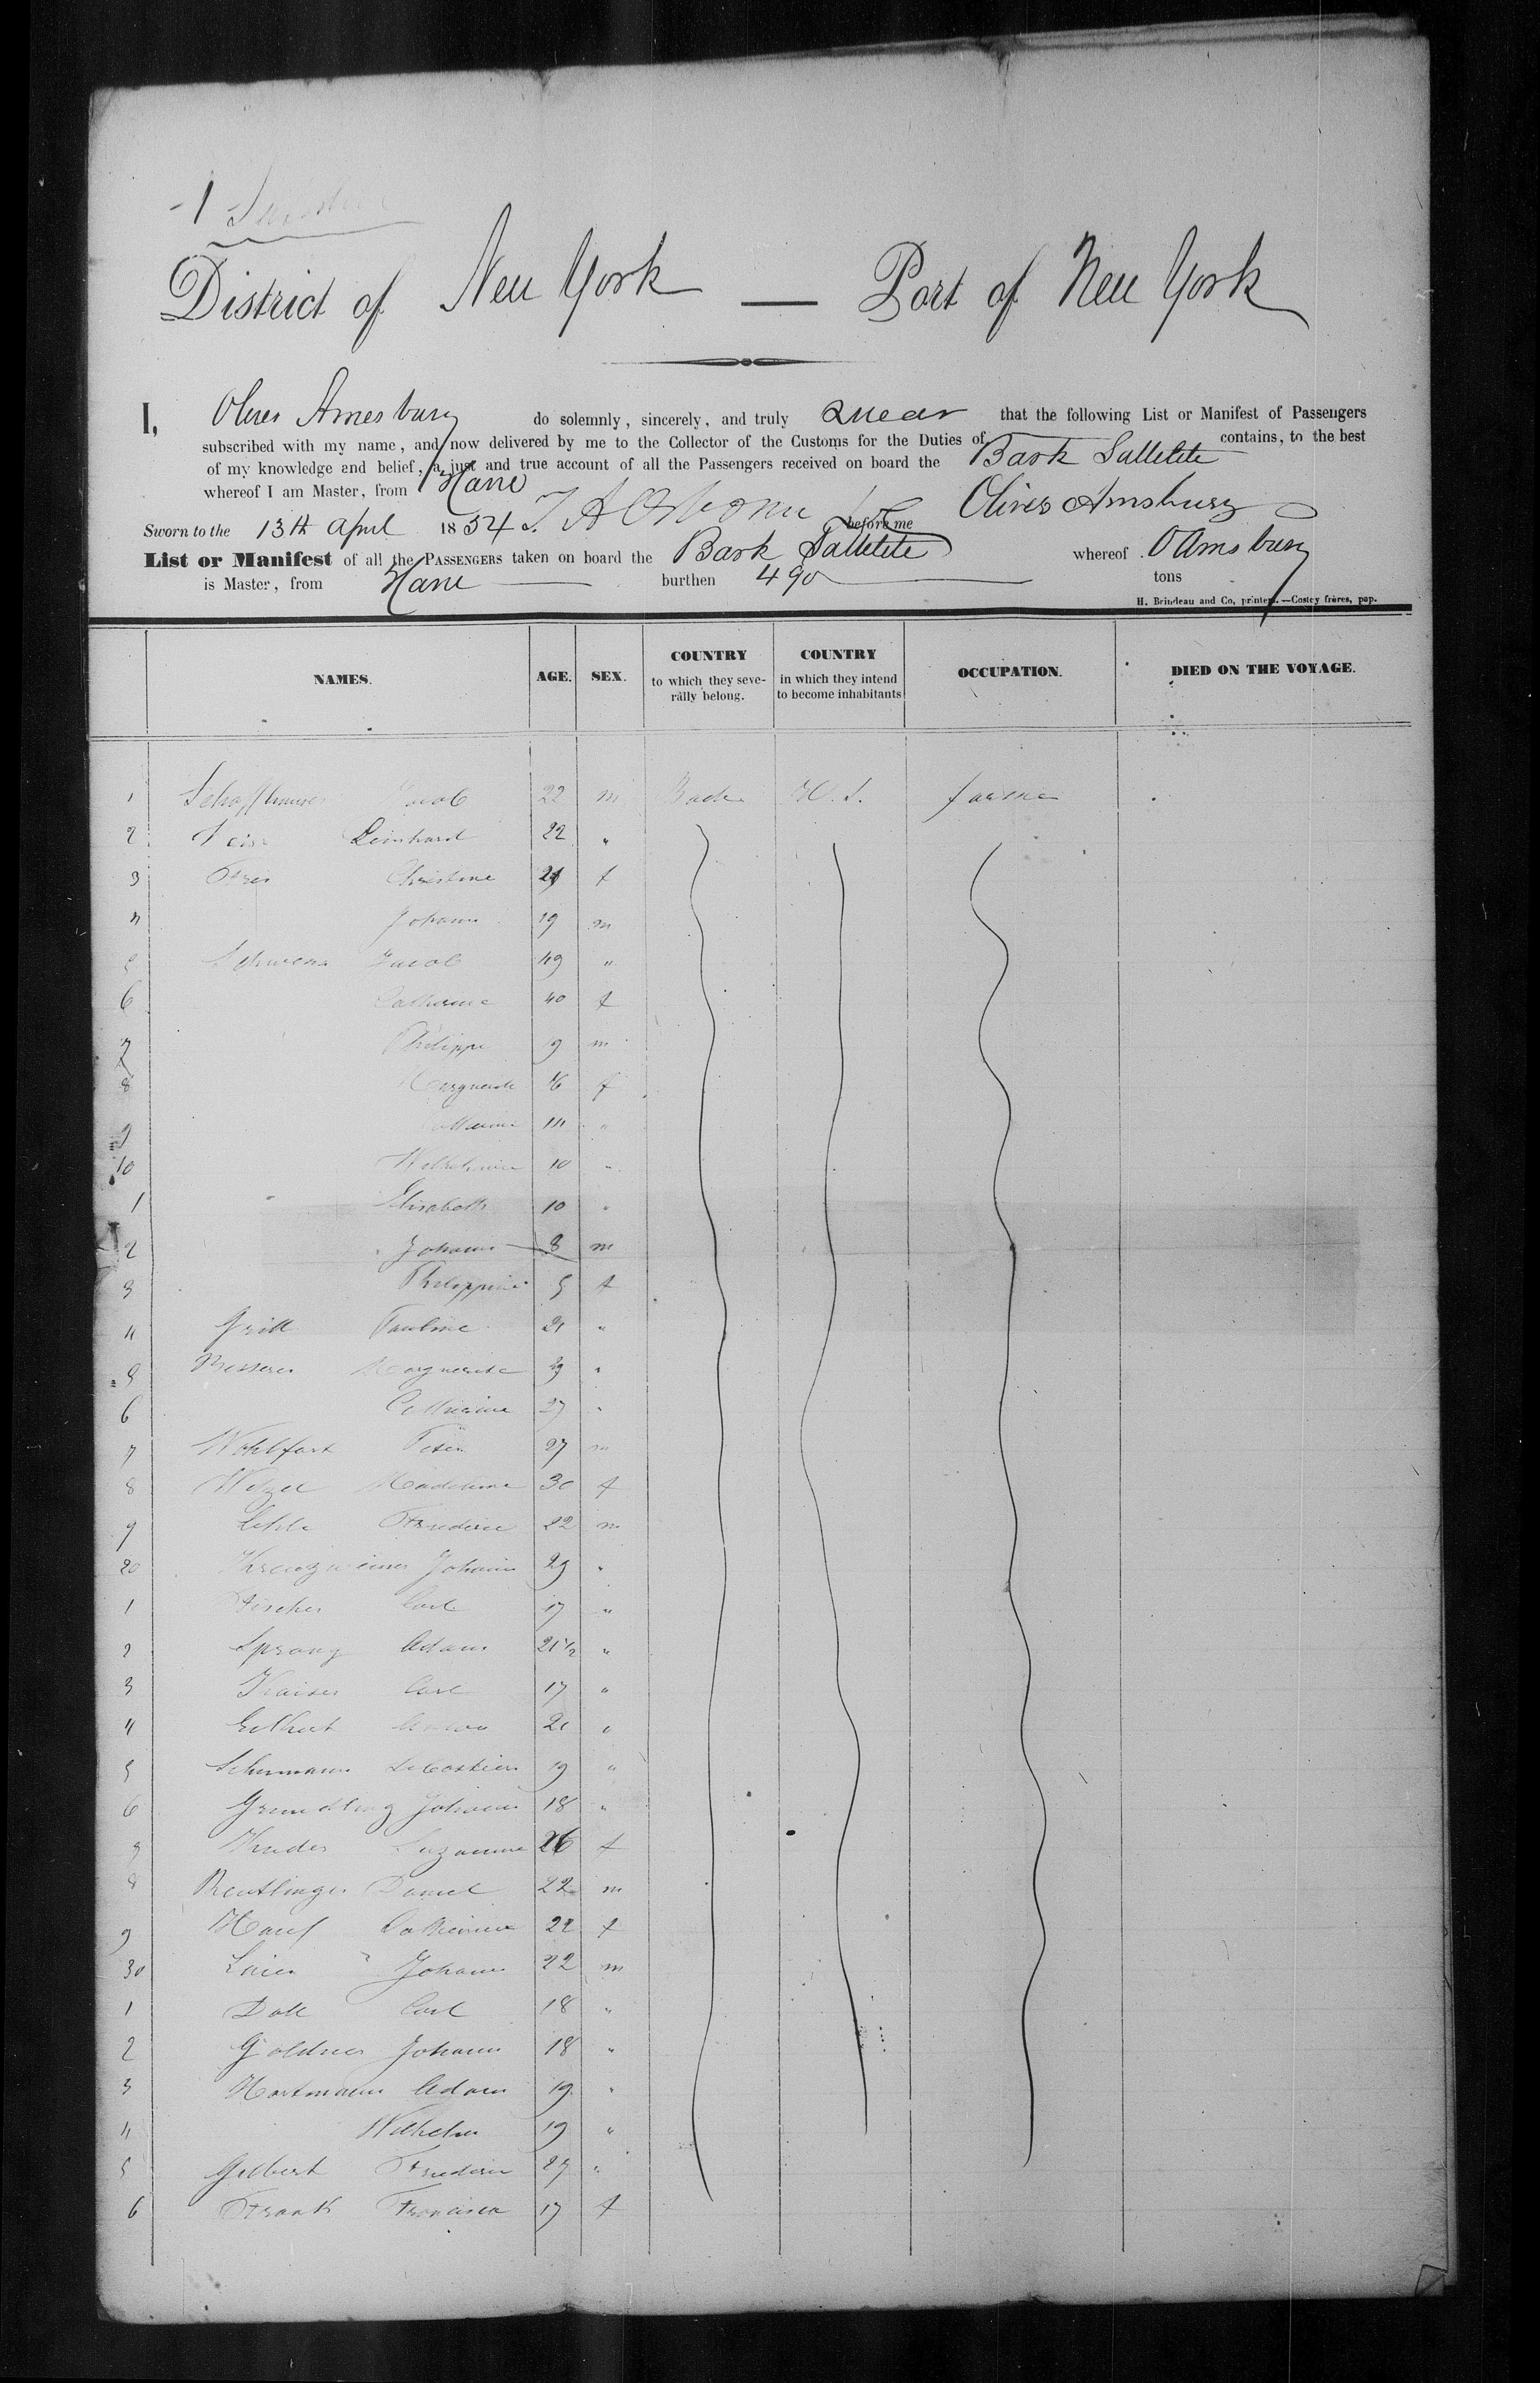 District of New York — Port of New York
I, Oliver Amesbury do solemnly, sincerely, and truly swear that the following List or Manifest of Passengers
subscribed with my name, and now delivered by me to the Collector of the Customs for the Duties of contains, to the best
of my knowledge and belief, a just and true account of all the Passengers received on board the Bark Sattelite
whereof I am Master, from Havre
Sworn to the 13th April 1854 before me Oliver Amsbury
List or Manifest of all the PASSENGERS taken on board the Bark Sattelite whereof O Amsbury
is Master, from Havre burthen 490 tons
H. Brindeau and Co, printers.—Costey frères, pap.
NAMES. AGE. SEX. COUNTRY to which they severally belong. COUNTRY in which they intend to become inhabitants OCCUPATION. DIED ON THE VOYAGE.
1 Schaffhauser Jacob 22 m Bade U.S. farmer
2 Leonhard 22 "
3 Christine 21 f
4 Johann 19 m
5 Jacob 49 "
6 Catherine 40 f
7 Philippe 9 m
8 Marguerite 16 f
9 Catharine 14 "
10 Wilhelmine 10 "
1 Elisabeth 10 "
2 Johann 8 m
3 Philippine 5 f
4 Grill Pauline 21 "
5 Besserer Marguerite 29 "
6 Catherine 27 "
7 Wohlfart Peter 27 m
8 Wetzel Madeleine 30 f
9 Frederic 22 m
20 Johann 29 "
1 Fischer Carl 17 "
2 Sprang Adam 21 1/2 "
3 Kaiser Carl 17 "
4 21 "
5 Schurmann Sebastien 19 "
6 Grundling Johann 18 "
7 Suzanne 26 f
8 Reutlinger Daniel 22 m
9 Hauf Catherine 22 f
30 Johann 22 m
1 Doll Carl 18 "
2 Goldner Johann 18 "
3 Hartmann Adam 19 "
4 Wilhelm 19 "
5 Gilbert Frederic 27 "
6 Frank Francisca 17 f